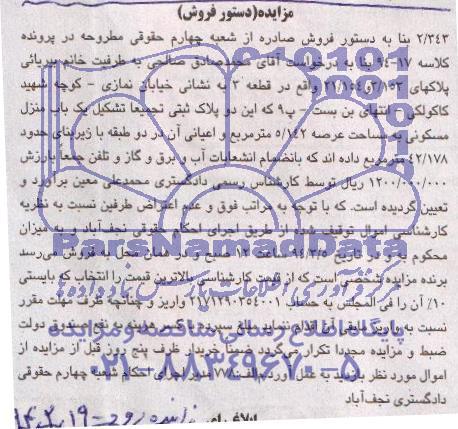 مزایده(دستور فروش)
۲/۳۴۳ بنا به دستور فروش صادره از شعبه چهارم حقوقی مطروحه در پرونده
کلاسه ۱۷-۹۴ بنا به درخواست آقای محمدصادق صالحی به طرفیت خانم بیربائی
پلاکهای واقع در قطعه ۳ به نشانی خیابان نمازی - کوچه شهید
کاکولکی - انتهای بن بست - پ۹ که این دو پلاک ثبتی تجمیعا تشکیل یک باب منزل
مسکونی به مساحت عرصه ۵/۱۴۲ مترمربع و اعیانی آن در دو طبقه با زیربنای حدود
۴۲/۱۷۸ مترمربع داده اند که بانضمام انشعابات آب و برق و گاز و تلفن جمعاً بارزش
۱۲۰۰/۰۰۰/۰۰۰ ریال توسط کارشناس رسمی دادگستری محمدعلی معین برآورد و
تعیین گردیده است. که با توجه به مراتب فوق و عدم اعتراض طرفین نسبت به نظریه
کارشناسی اموال توقیف شده از طریق اجرای احکام حقوقی نجف‌آباد و به میزان
محکوم به و در تاریخ ۹۴/۳/۵ ساعت ۱۲ صبح و در همان محل به فروش می‌رسد
برنده مزایده شخصی است که از قیمت کارشناسی بالاترین قیمت را انتخاب که بایستی
۱۰٪ آن را فی المجلس به حساب ۲۱۷۱۲۹۰۳۵۴۰۰۱ واریز و چنانچه ظرف مهلت مقرر
نسبت به واریز مابقی آن اقدام ننماید مبلغ سپرده با کسر هزینه به نفع صندوق دولت
ضبط و مزایده مجددا تکرار می‌گردد ضمناً خریدار ظرف پنج روز قبل از مزایده از
اموال مورد نظر بازدید به عمل آورد. م‌الف:۷۷۸ مدیر اجرای احکام شعبه چهارم حقوقی
دادگستری نجف‌آباد
ParsNamadData
پایگاه اطلاع رسانی مناقصه و مزایده
۰۲۱-۸۸۳۴۹۶۷۰-۵
زاینده رود - ۹۴.۲.۱۹